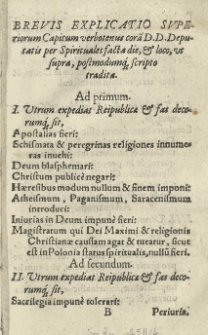 BREVIS EXPLICATIO SVPE-
riorum Capitum verbotenus corā D.D. Depu-
tatis per Spirituales facta die, & loco, vt
supra, postmodumq́; scripto
tradita.
Ad primum.
I. Vtrum expediat Reipublicæ & fas deco-
rumq́; sit,
Apostatas fieri:
Schismata & peregrinas religiones innume-
ras inuehi:
Deum blasphemari:
Christum publicè negari:
Hæresibus modum nullum & finem imponi:
Atheismum, Paganismum, Saracenismum
introduci:
Iniurias in Deum impunè fieri:
Magistratum qui Dei Maximi & religionis
Christianæ caussam agat & tueatur, sicut
est in Polonia status spiritualis, nullū fieri:
Ad secundum.
II. Vtrum expediat Reipublicæ & fas deco-
rumq́; sit,
Sacrilegia impunè tolerari:
B Periuria,